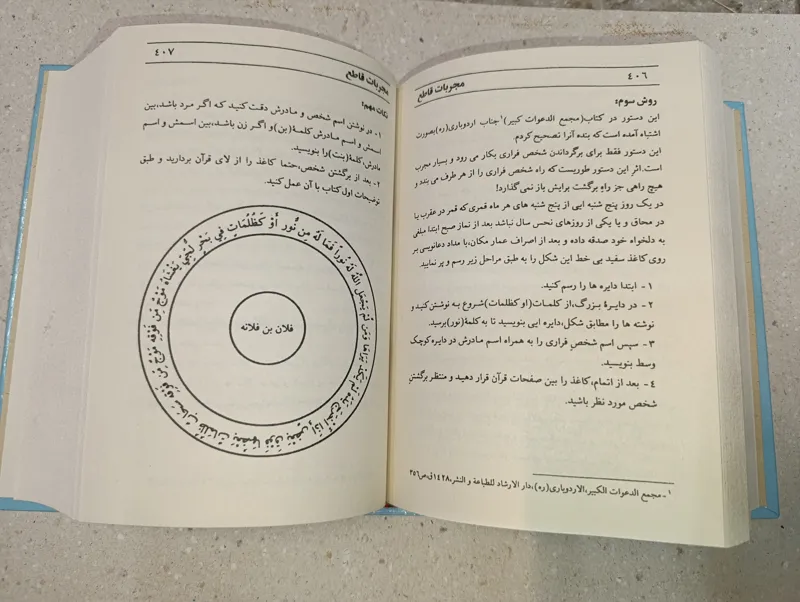 مجربات قاطع
٤٠٦
روش سوم:
این دستور در کتاب(مجمع الدعوات کبیر)١جناب اردوباری(ره)بصورت
اشتباه آمده است که بنده آنرا تصحیح کردم.
این دستور فقط برای برگرداندن شخص فراری بکار می رود و بسیار مجرب
است.اثر این دستور طوریست که راه شخص فراری را از هر طرف می بندد و
هیچ راهی جز راه برگشت برایش باز نمی گذارد!
در یک روز پنج شنبه ایی از پنج شنبه های هر ماه قمری که قمر در عقرب یا
در محاق و یا یکی از روزهای نحس سال نباشد بعد از نماز صبح ابتدا مبلغی
به دلخواه خود صدقه داده و بعد از اصراف عمار مکان،با مداد دعانویسی بر
روی کاغذ سفید بی خط این شکل را به طبق مراحل زیر رسم و پر نمایید
١- ابتدا دایره ها را رسم کنید.
٢- در دایرهٔ بزرگ،از کلمات(او کظلمات)شروع به نوشتن کنید و
نوشته ها را مطابق شکل،دایره ایی بنویسید تا به کلمهٔ(نور)برسید.
٣- سپس اسم شخص فراری را به همراه اسم مادرش در دایره کوچک
وسط بنویسید.
٤- بعد از اتمام،کاغذ را بین صفحات قرآن قرار دهید و منتظر برگشتن
شخص مورد نظر باشید.
١- مجمع الدعوات الکبیر،الاردوباری(ره)،دار الارشاد للطباعة و النشر،١٤٢٨ق،ص٣٥٦
٤٠٧
مجربات قاطع
نکات مهم:
١- در نوشتن اسم شخص و مادرش دقت کنید که اگر مرد باشد،بین
اسمش و اسم مادرش کلمهٔ(بن)و اگر زن باشد،بین اسمش و اسم
مادرش،کلمهٔ(بنت)را بنویسید.
٢- بعد از برگشتن شخص،حتما کاغذ را از لای قرآن بردارید و طبق
توضیحات اول کتاب با آن عمل کنید.
أَوْ كَظُلُمَاتٍ فِي بَحْرٍ لُّجِّيٍّ يَغْشَاهُ مَوْجٌ مِّن فَوْقِهِ مَوْجٌ مِّن فَوْقِهِ سَحَابٌ ظُلُمَاتٌ بَعْضُهَا فَوْقَ بَعْضٍ إِذَا أَخْرَجَ يَدَهُ لَمْ يَكَدْ يَرَاهَا وَمَن لَّمْ يَجْعَلِ اللَّهُ لَهُ نُوراً فَمَا لَهُ مِن نُّورٍ
فلان بن فلانه